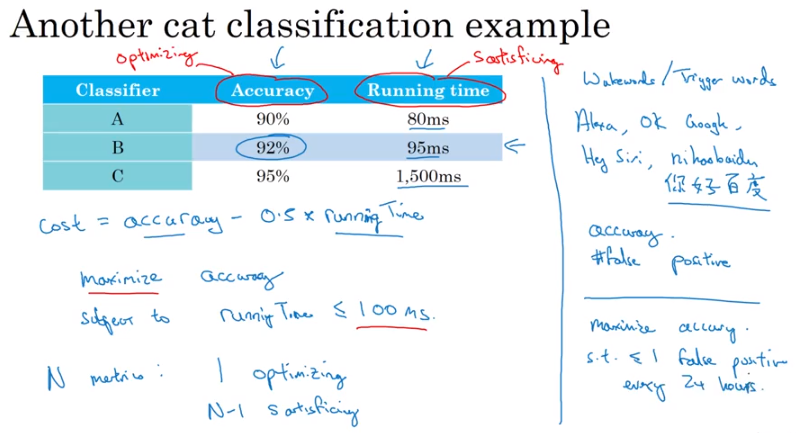 Another cat classification example
optimizing
satisficing
Classifier Accuracy Running time
A 90% 80ms
B 92% 95ms
C 95% 1,500ms
cost = accuracy - 0.5 x running Time
maximize accuracy
subject to running Time ≤ 100 ms.
N metrics: 1 optimizing
N-1 satisficing
Wakewords / Trigger words
Alexa, OK Google,
Hey Siri, nihaobaidu
你好百度
accuracy.
#false positive
maximize accuracy.
s.t. ≤ 1 false positive
every 24 hours.